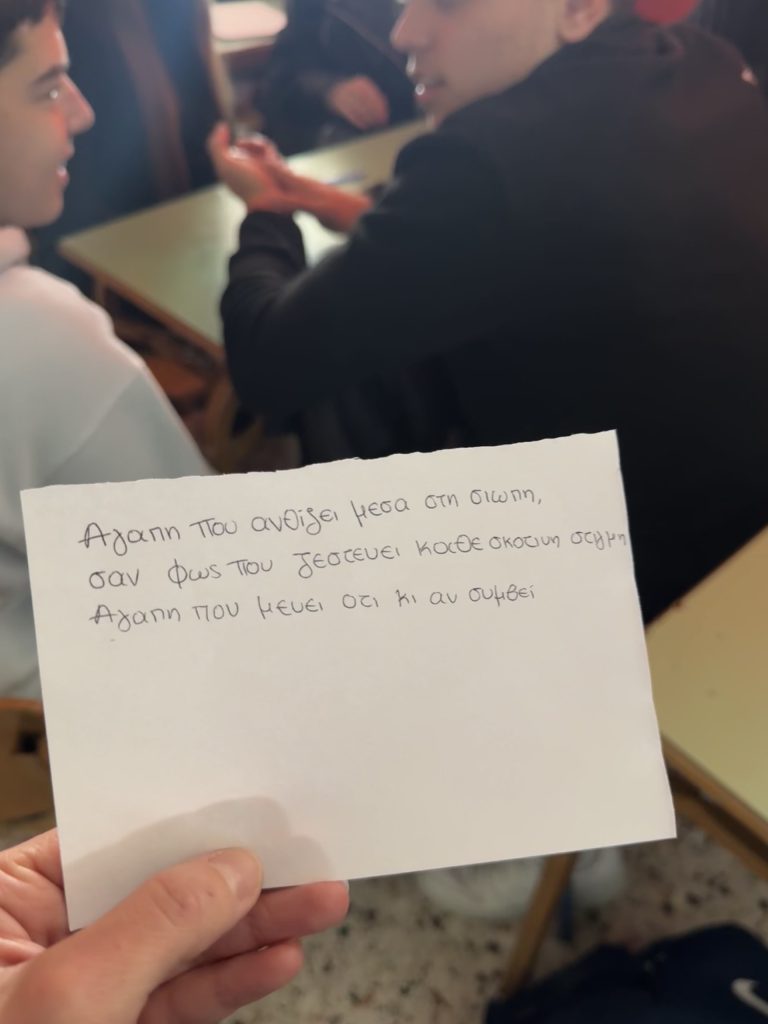 Αγαπη που ανθίζει μεσα στη σιωπη,
σαν φως που ζεστευει καθε σκοτινη στιγμη
Αγαπη που μενει οτι κι αν συμβεί